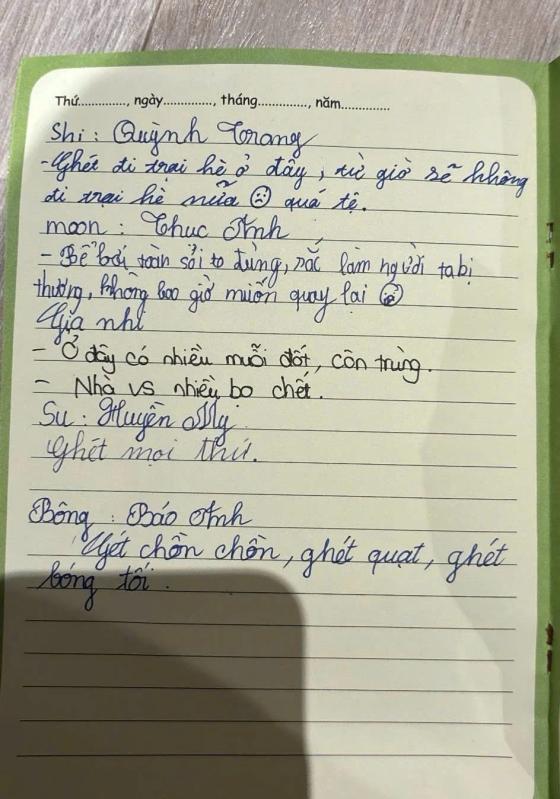 Thứ............, ngày............, tháng............, năm............
Shi : Quỳnh Trang
- Ghét đi trại hè ở đây, từ giờ sẽ không
đi trại hè nữa ☹ quá tệ.
moon : Thuc Anh
- Bể bơi toàn sỏi to đùng, sắc làm người ta bị
thương, không bao giờ muốn quay lại ☹
Gia nhi
- Ở đây có nhiều muỗi đốt, côn trùng.
- Nhà vs nhiều bọ chết.
Su : Huyền My
Ghét mọi thứ.
Bông : Bảo Anh
Gét chồn chồn, ghét quạt, ghét
bóng tối.